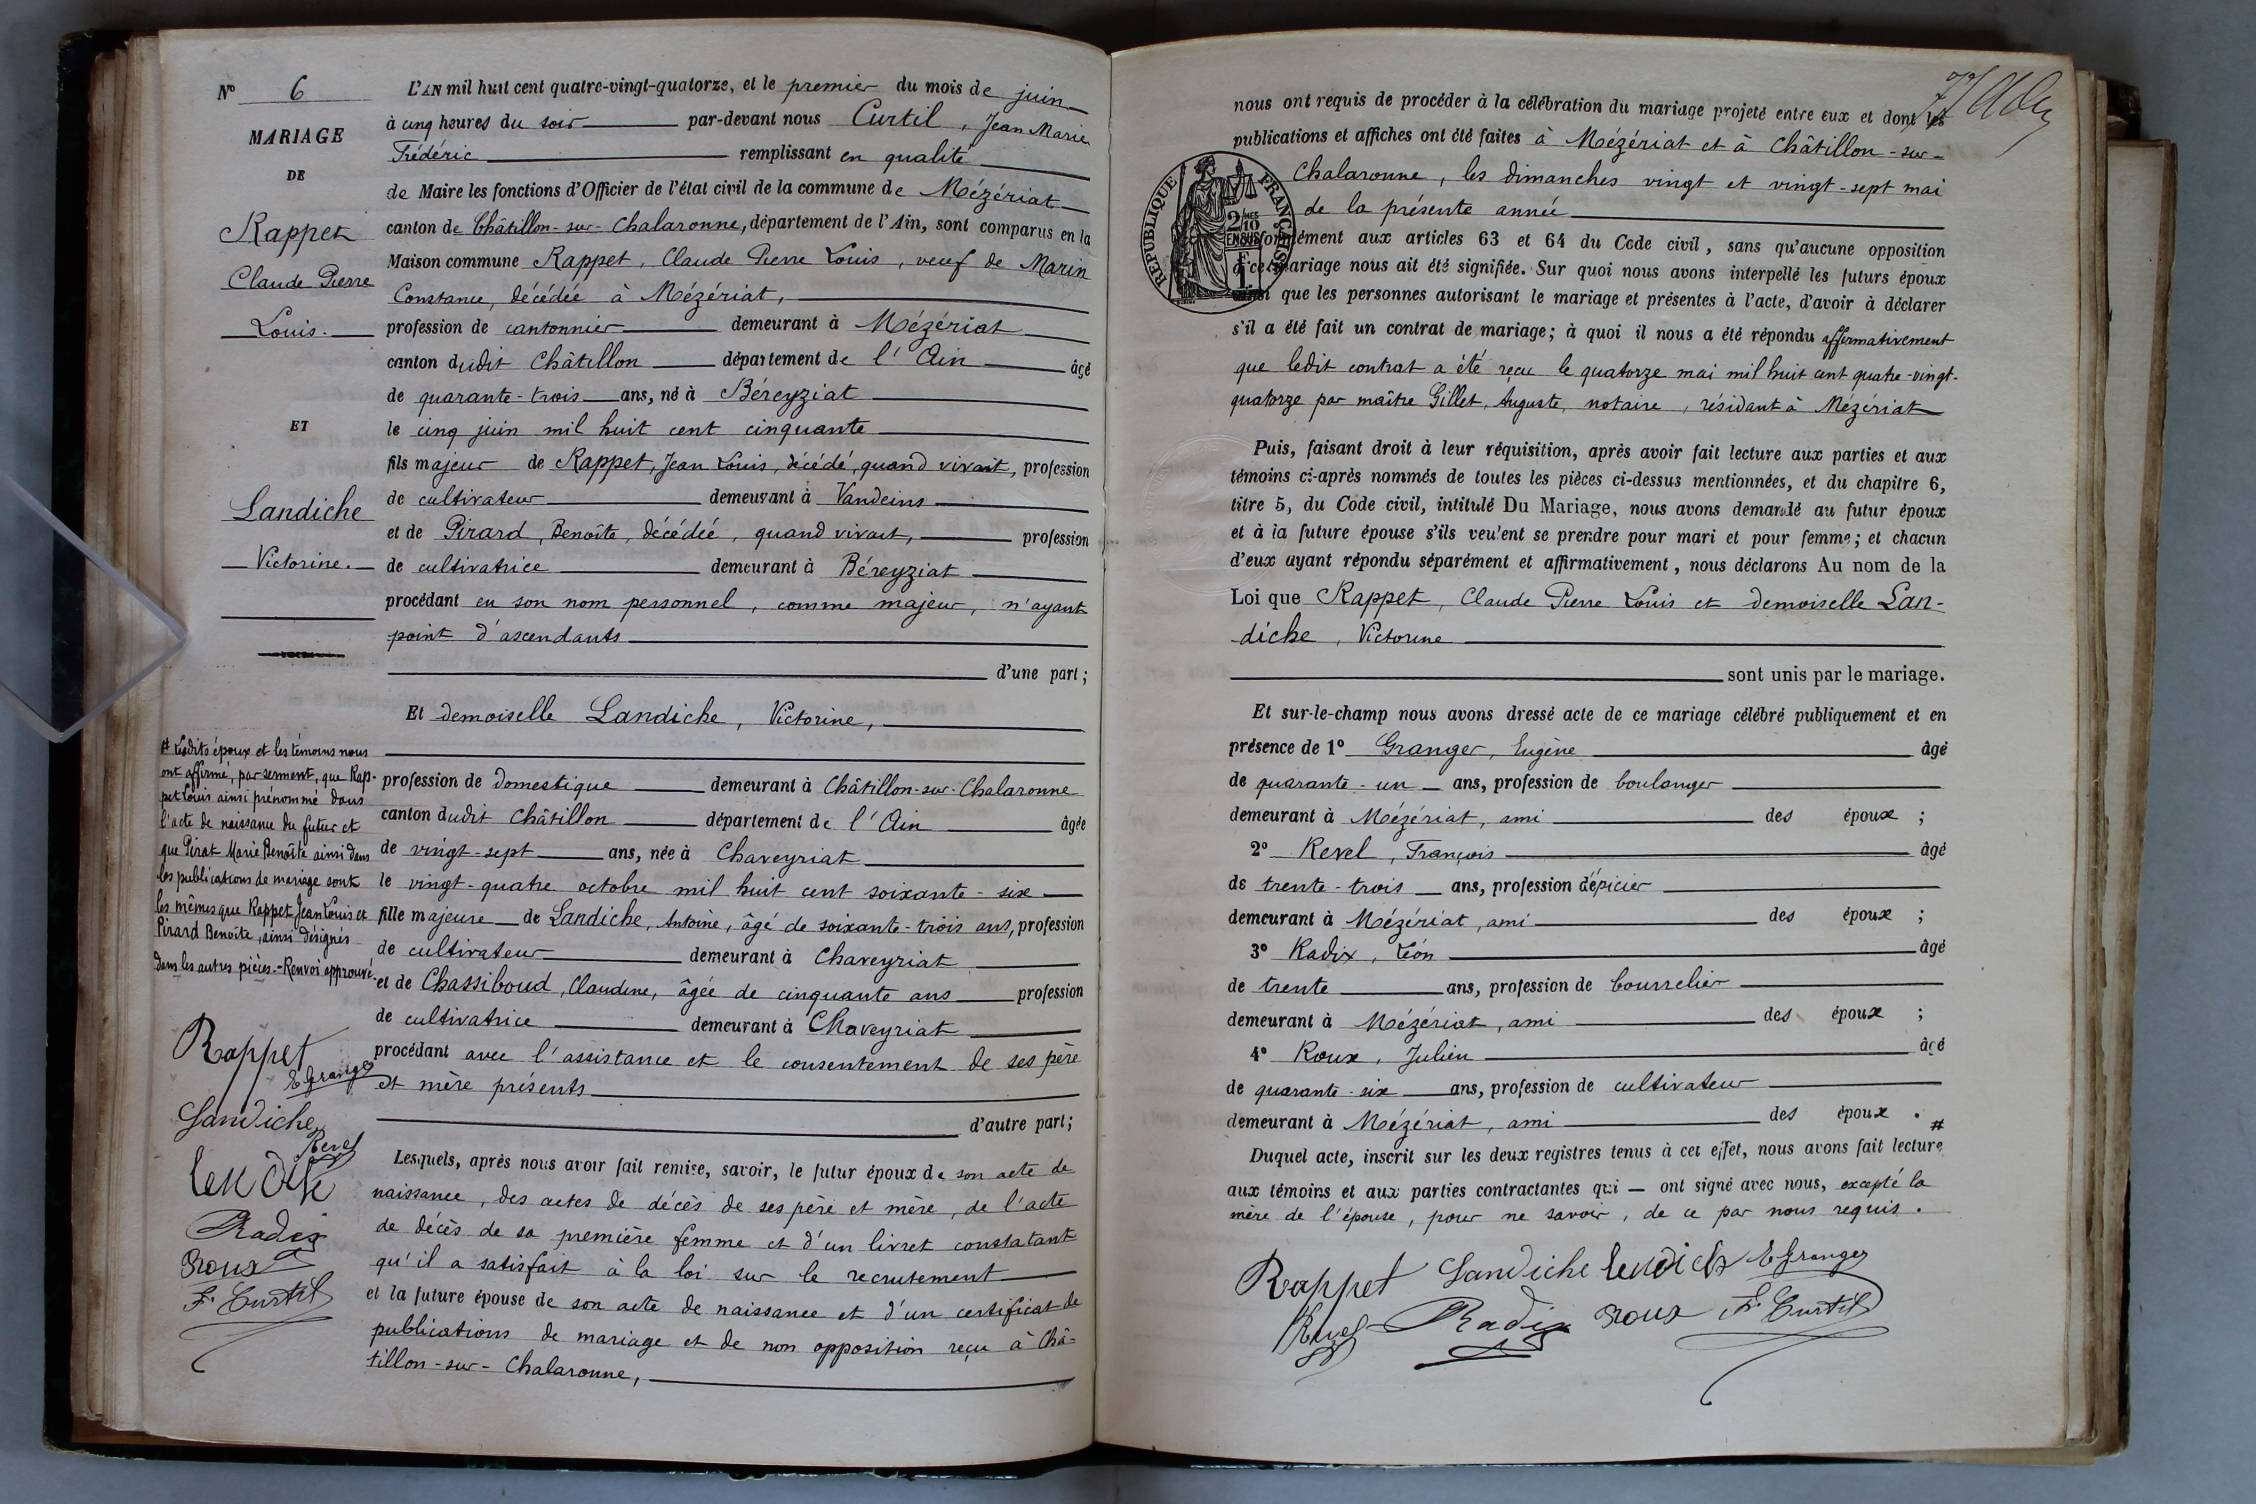 Nº 6
MARIAGE
DE
Rappet
Claude Pierre
Louis.
ET
Landiche
Victorine.
L'AN mil huit cent quatre-vingt-quatorze, et le premier du mois de juin
à cinq heures du soir par-devant nous Curtil, Jean Marie
Frédéric remplissant en qualité
de Maire les fonctions d'Officier de l'état civil de la commune de Mézériat
canton de Châtillon-sur-Chalaronne, département de l'Ain, sont comparus en la
Maison commune Rappet, Claude Pierre Louis, veuf de Marin
Constance, décédée à Mézériat,
profession de cantonnier demeurant à Mézériat
canton dudit Châtillon département de l'Ain âgé
de quarante-trois ans, né à Béreyziat
le cinq juin mil huit cent cinquante
fils majeur de Rappet, Jean Louis, décédé, quand vivait, profession
de cultivateur demeurant à Vandeins
et de Pirard, Benoîte, décédée, quand vivait, profession
de cultivatrice demeurant à Béreyziat
procédant en son nom personnel, comme majeur, n'ayant
point d'ascendants
d'une part;
Et demoiselle Landiche, Victorine,
profession de domestique demeurant à Châtillon-sur-Chalaronne
canton dudit Châtillon département de l'Ain âgée
de vingt-sept ans, née à Chaveyriat
le vingt-quatre octobre mil huit cent soixante-six
fille majeure de Landiche, Antoine, âgé de soixante-trois ans, profession
de cultivateur demeurant à Chaveyriat
et de Chassiboud, Claudine, âgée de cinquante ans profession
de cultivatrice demeurant à Chaveyriat
procédant avec l'assistance et le consentement de ses père
et mère présents
d'autre part;
Lesquels, après nous avoir fait remise, savoir, le futur époux de son acte de
naissance, des actes de décès de ses père et mère, de l'acte
de décès de sa première femme et d'un livret constatant
qu'il a satisfait à la loi sur le recrutement
et la future épouse de son acte de naissance et d'un certificat de
publications de mariage et de non opposition reçu à Châ-
tillon-sur-Chalaronne,
# Lesdits époux et les témoins nous
ont affirmé, par serment, que Rap-
pet Louis ainsi prénommé dans
l'acte de naissance du futur et
que Pirat Marie Benoîte ainsi dans
les publications de mariage sont
les mêmes que Rappet Jean Louis et
Pirard Benoîte, ainsi désignés
dans les autres pièces. - Renvoi approuvé.
Rappet
E Granger
Landiche
Revel
Radix
Roux
F. Curtil
nous ont requis de procéder à la célébration du mariage projeté entre eux et dont les
publications et affiches ont été faites à Mézériat et à Châtillon-sur-
Chalaronne, les dimanches vingt et vingt-sept mai
de la présente année
conformément aux articles 63 et 64 du Code civil, sans qu'aucune opposition
à ce mariage nous ait été signifiée. Sur quoi nous avons interpellé les futurs époux
ainsi que les personnes autorisant le mariage et présentes à l'acte, d'avoir à déclarer
s'il a été fait un contrat de mariage; à quoi il nous a été répondu affirmativement
que ledit contrat a été reçu le quatorze mai mil huit cent quatre-vingt-
quatorze par maître Gillet, Auguste, notaire, résidant à Mézériat
RÉPUBLIQUE FRANÇAISE
2/10 EN SUS
Puis, faisant droit à leur réquisition, après avoir fait lecture aux parties et aux
témoins ci-après nommés de toutes les pièces ci-dessus mentionnées, et du chapitre 6,
titre 5, du Code civil, intitulé Du Mariage, nous avons demandé au futur époux
et à la future épouse s'ils veulent se prendre pour mari et pour femme; et chacun
d'eux ayant répondu séparément et affirmativement, nous déclarons Au nom de la
Loi que Rappet, Claude Pierre Louis et demoiselle Lan-
diche, Victorine
sont unis par le mariage.
Et sur-le-champ nous avons dressé acte de ce mariage célébré publiquement et en
présence de 1º Granger, Eugène âgé
de quarante-un ans, profession de boulanger
demeurant à Mézériat, ami des époux ;
2º Revel, François âgé
de trente-trois ans, profession d'épicier
demeurant à Mézériat, ami des époux ;
3º Radix, Léon âgé
de trente ans, profession de bourrelier
demeurant à Mézériat, ami des époux ;
4º Roux, Julien âgé
de quarante-six ans, profession de cultivateur
demeurant à Mézériat, ami des époux . #
Duquel acte, inscrit sur les deux registres tenus à cet effet, nous avons fait lecture
aux témoins et aux parties contractantes qui — ont signé avec nous, excepté la
mère de l'épouse, pour ne savoir, de ce par nous requis.
Rappet Landiche E Granger
Revel Radix Roux F. Curtil